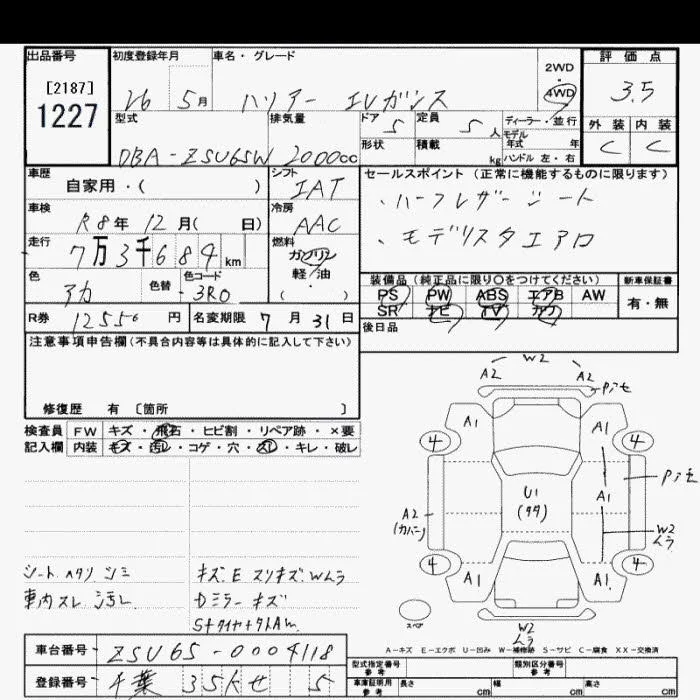 出品番号
[2187]
1227
初度登録年月
26 5月
車名・グレード
ハリアー エレガンス
2WD
・
4WD
評価点
3.5
外装 内装
C C
型式
DBA-ZSU65W
排気量
2000cc
ドア 5
形状
定員 5人
積載 kg
ディーラー・並行
モデル
年式 年
ハンドル 左・右
車歴
自家用・( )
シフト
IAT
車検
R8年 12月( 日)
冷房
AAC
走行
7万3千684km
燃料
ガソリン
軽・油
( )
色
アカ
色替
色コード
3R0
R券 12556円
名変期限 7月31日
セールスポイント(正常に機能するものに限ります)
・ハーフレザーシート
・モデリスタエアロ
装備品(純正品に限り〇をつけてください)
PS PW ABS エアB AW
SR ナビ TV カワ
新車保証書
有・無
後日品
注意事項申告欄(不具合内容等は具体的に記入して下さい)
修復歴 有 〔箇所 〕
検査員 FW キズ・飛石・ヒビ割・リペア跡・×要
記入欄 内装 キズ・汚レ・コゲ・穴・スレ・キレ・破レ
シート ヘタリ シミ
車内スレ 汚レ
キズ.E スリキズ.Wムラ
Dミラーキズ
W2
A2 A2
A1 A1
4 4
U1
A1
A2
(カバー)
W2
ムラ
4 4
A1 A1
スペア
W2
ムラ
A-キズ E-エクボ U-凹み W-補修跡 S-サビ C-腐食 XX-交換済
車台番号 ZSU65-0004118
登録番号 千葉 35 せ 5
型式指定番号
参考
類別区分番号
参考
車庫証明用
参考
長さ cm 幅 cm 高さ cm